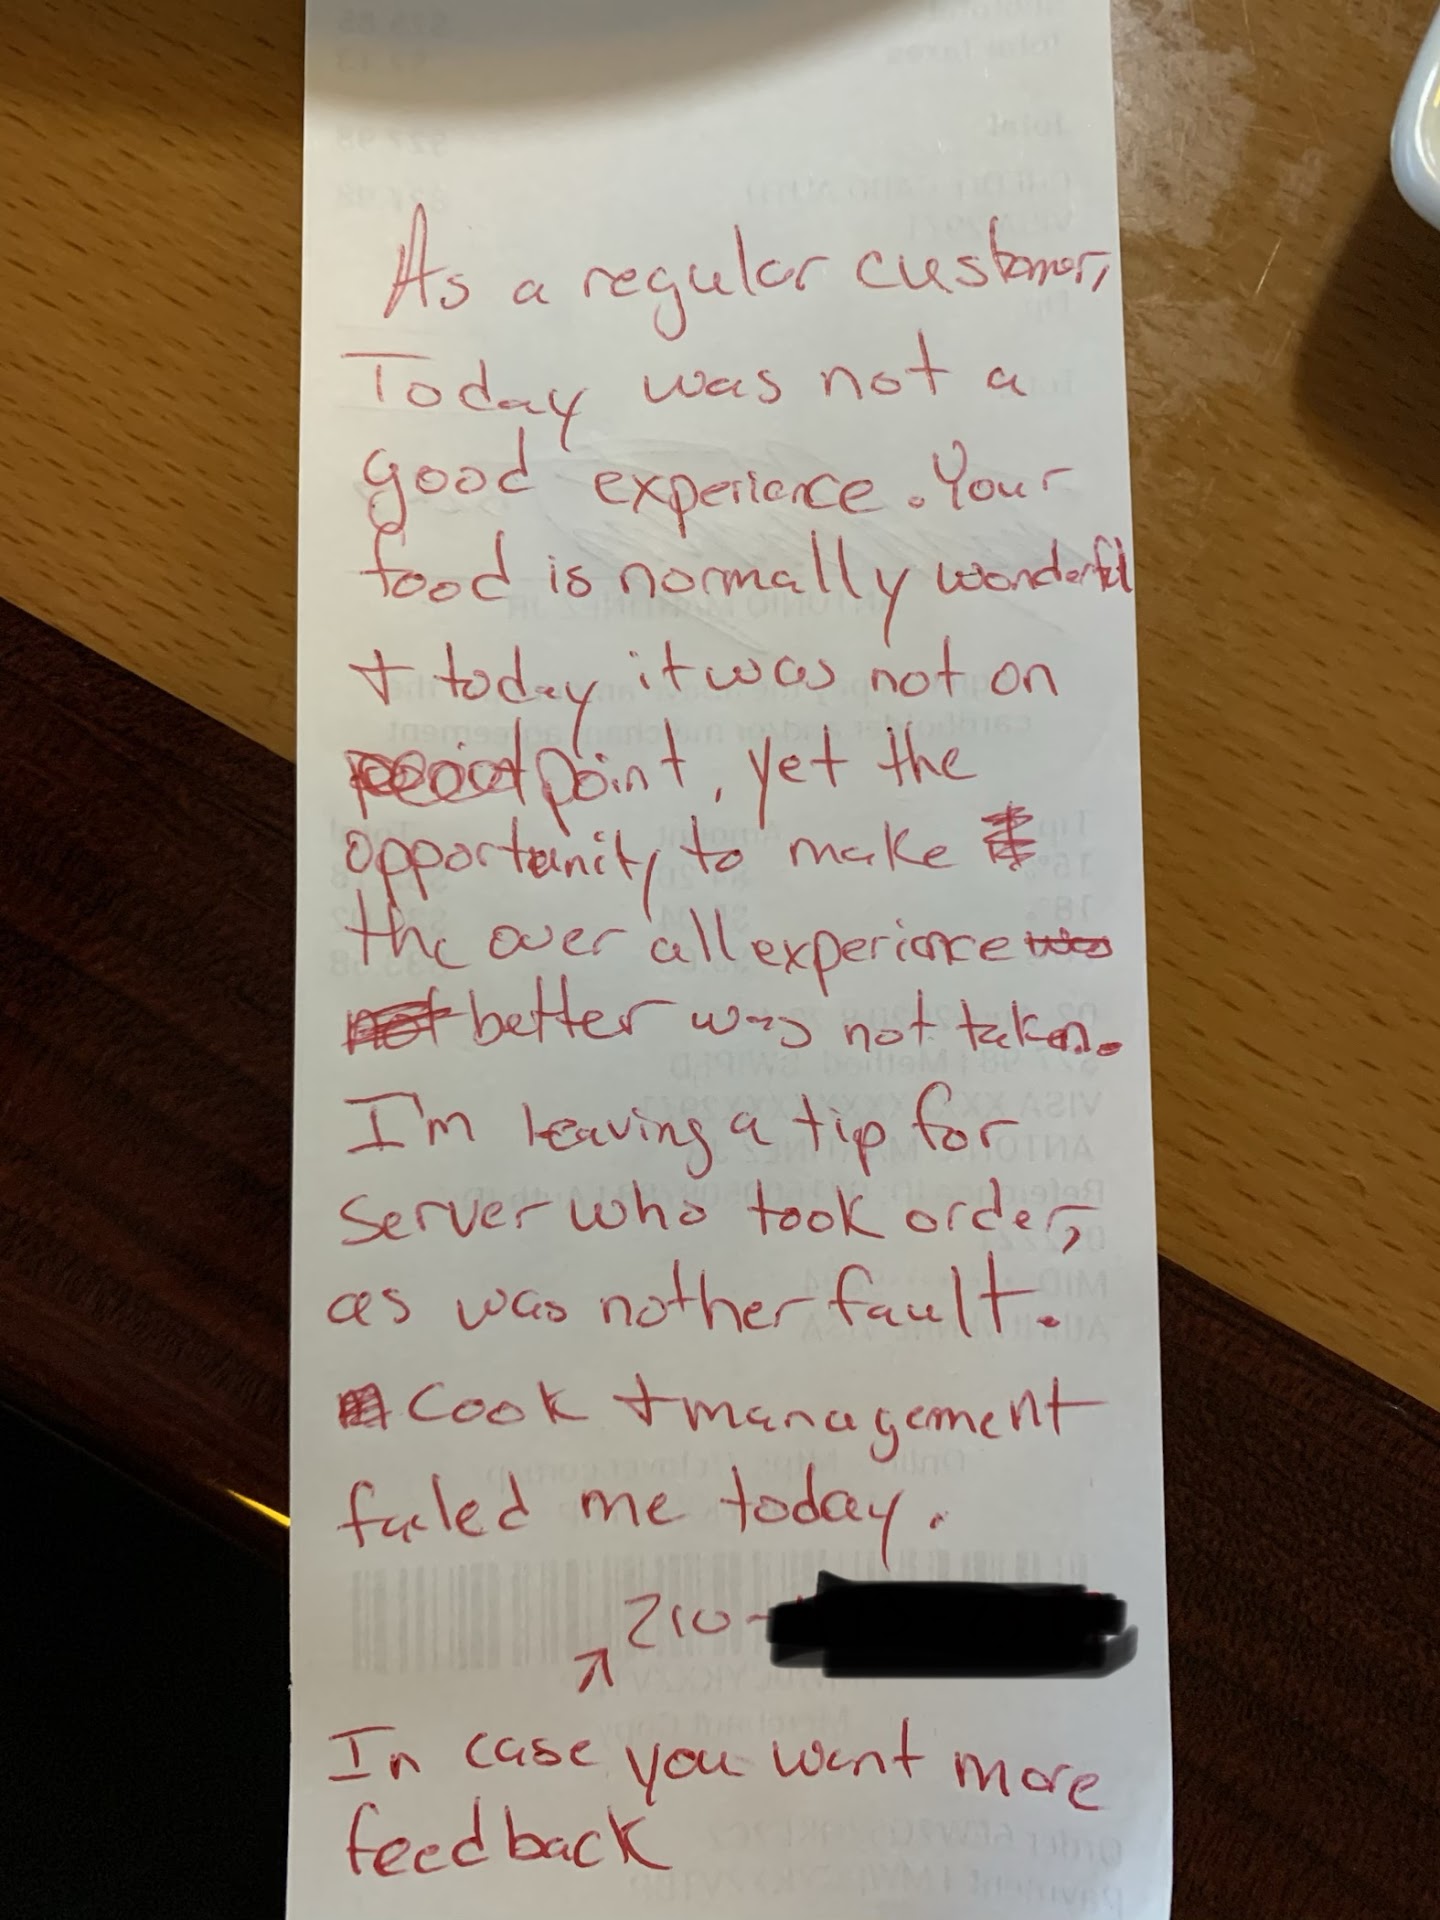 As a regular customer,
Today was not a
good experience. Your
food is normally wonderful
+ today it was not on
point, yet the
opportunity to make
the over all experience
better was not taken.
I'm leaving a tip for
Server who took order,
as was not her fault.
Cook + management
failed me today.
210-
In case you want more
feedback